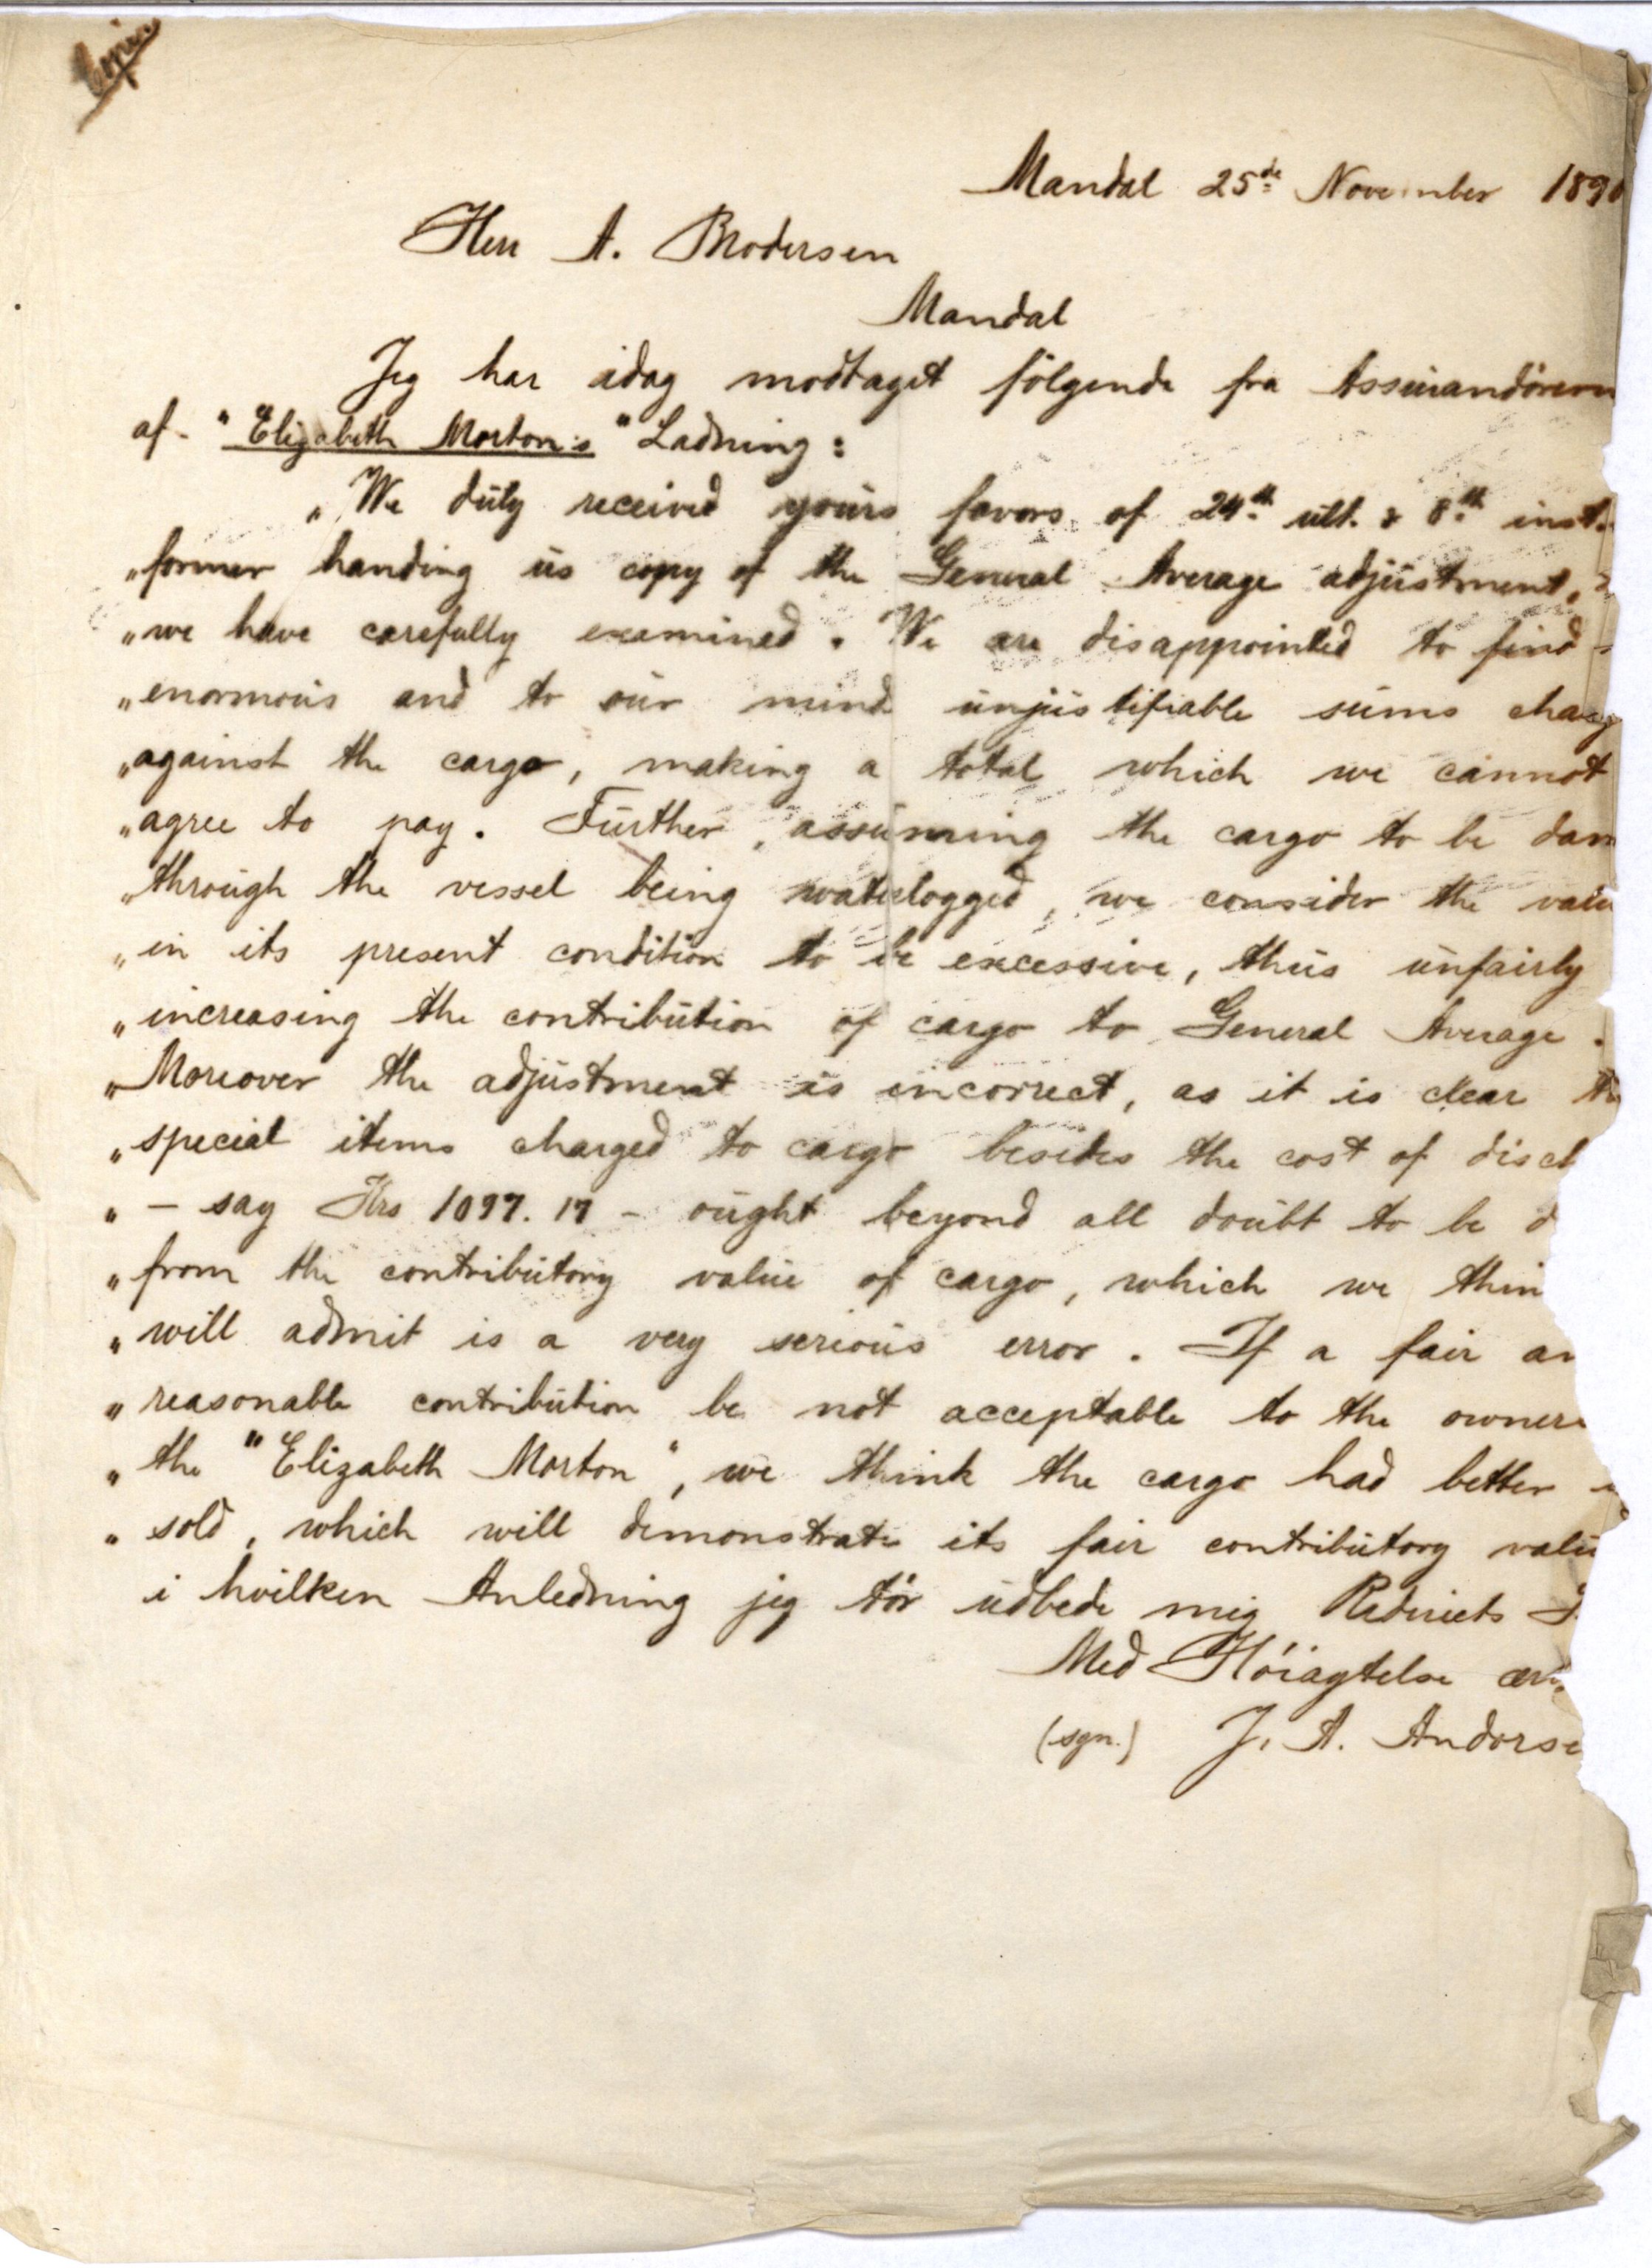 Copie
Mandal 25de November 1890
Herr A. Brodersen
Mandal
Jeg har idag modtaget fölgende fra Assurandörern
af "Elizabeth Morton's" Ladning:
"We duly received yours favors of 24th ult. & 8th inst.
"former handing us copy of the General Average adjustment,
"we have carefully examined. We are disappointed to find
"enormous and to our mind unjustifiable sums charg
"against the cargo, making a total which we cannot
"agree to pay. Further, assuming the cargo to be dam
"through the vessel being waterlogged, we consider the valu
"in its present condition to be excessive, thus unfairly
"increasing the contribution of cargo to General Average.
"Moreover the adjustment is incorrect, as it is clear th
"special items charged to cargo besides the cost of disch
"- say Krs 1097.17 - ought beyond all doubt to be d
"from the contributory value of cargo, which we thin
"will admit is a very serious error. If a fair an
"reasonable contribution be not acceptable to the owners
"the "Elizabeth Morton", we think the cargo had better
"sold, which will demonstrate its fair contributory valu
i hvilken Anledning jeg tör udbede mig Rederiets
Med Höiagtelse ær
(sgn.) J. A. Andorse